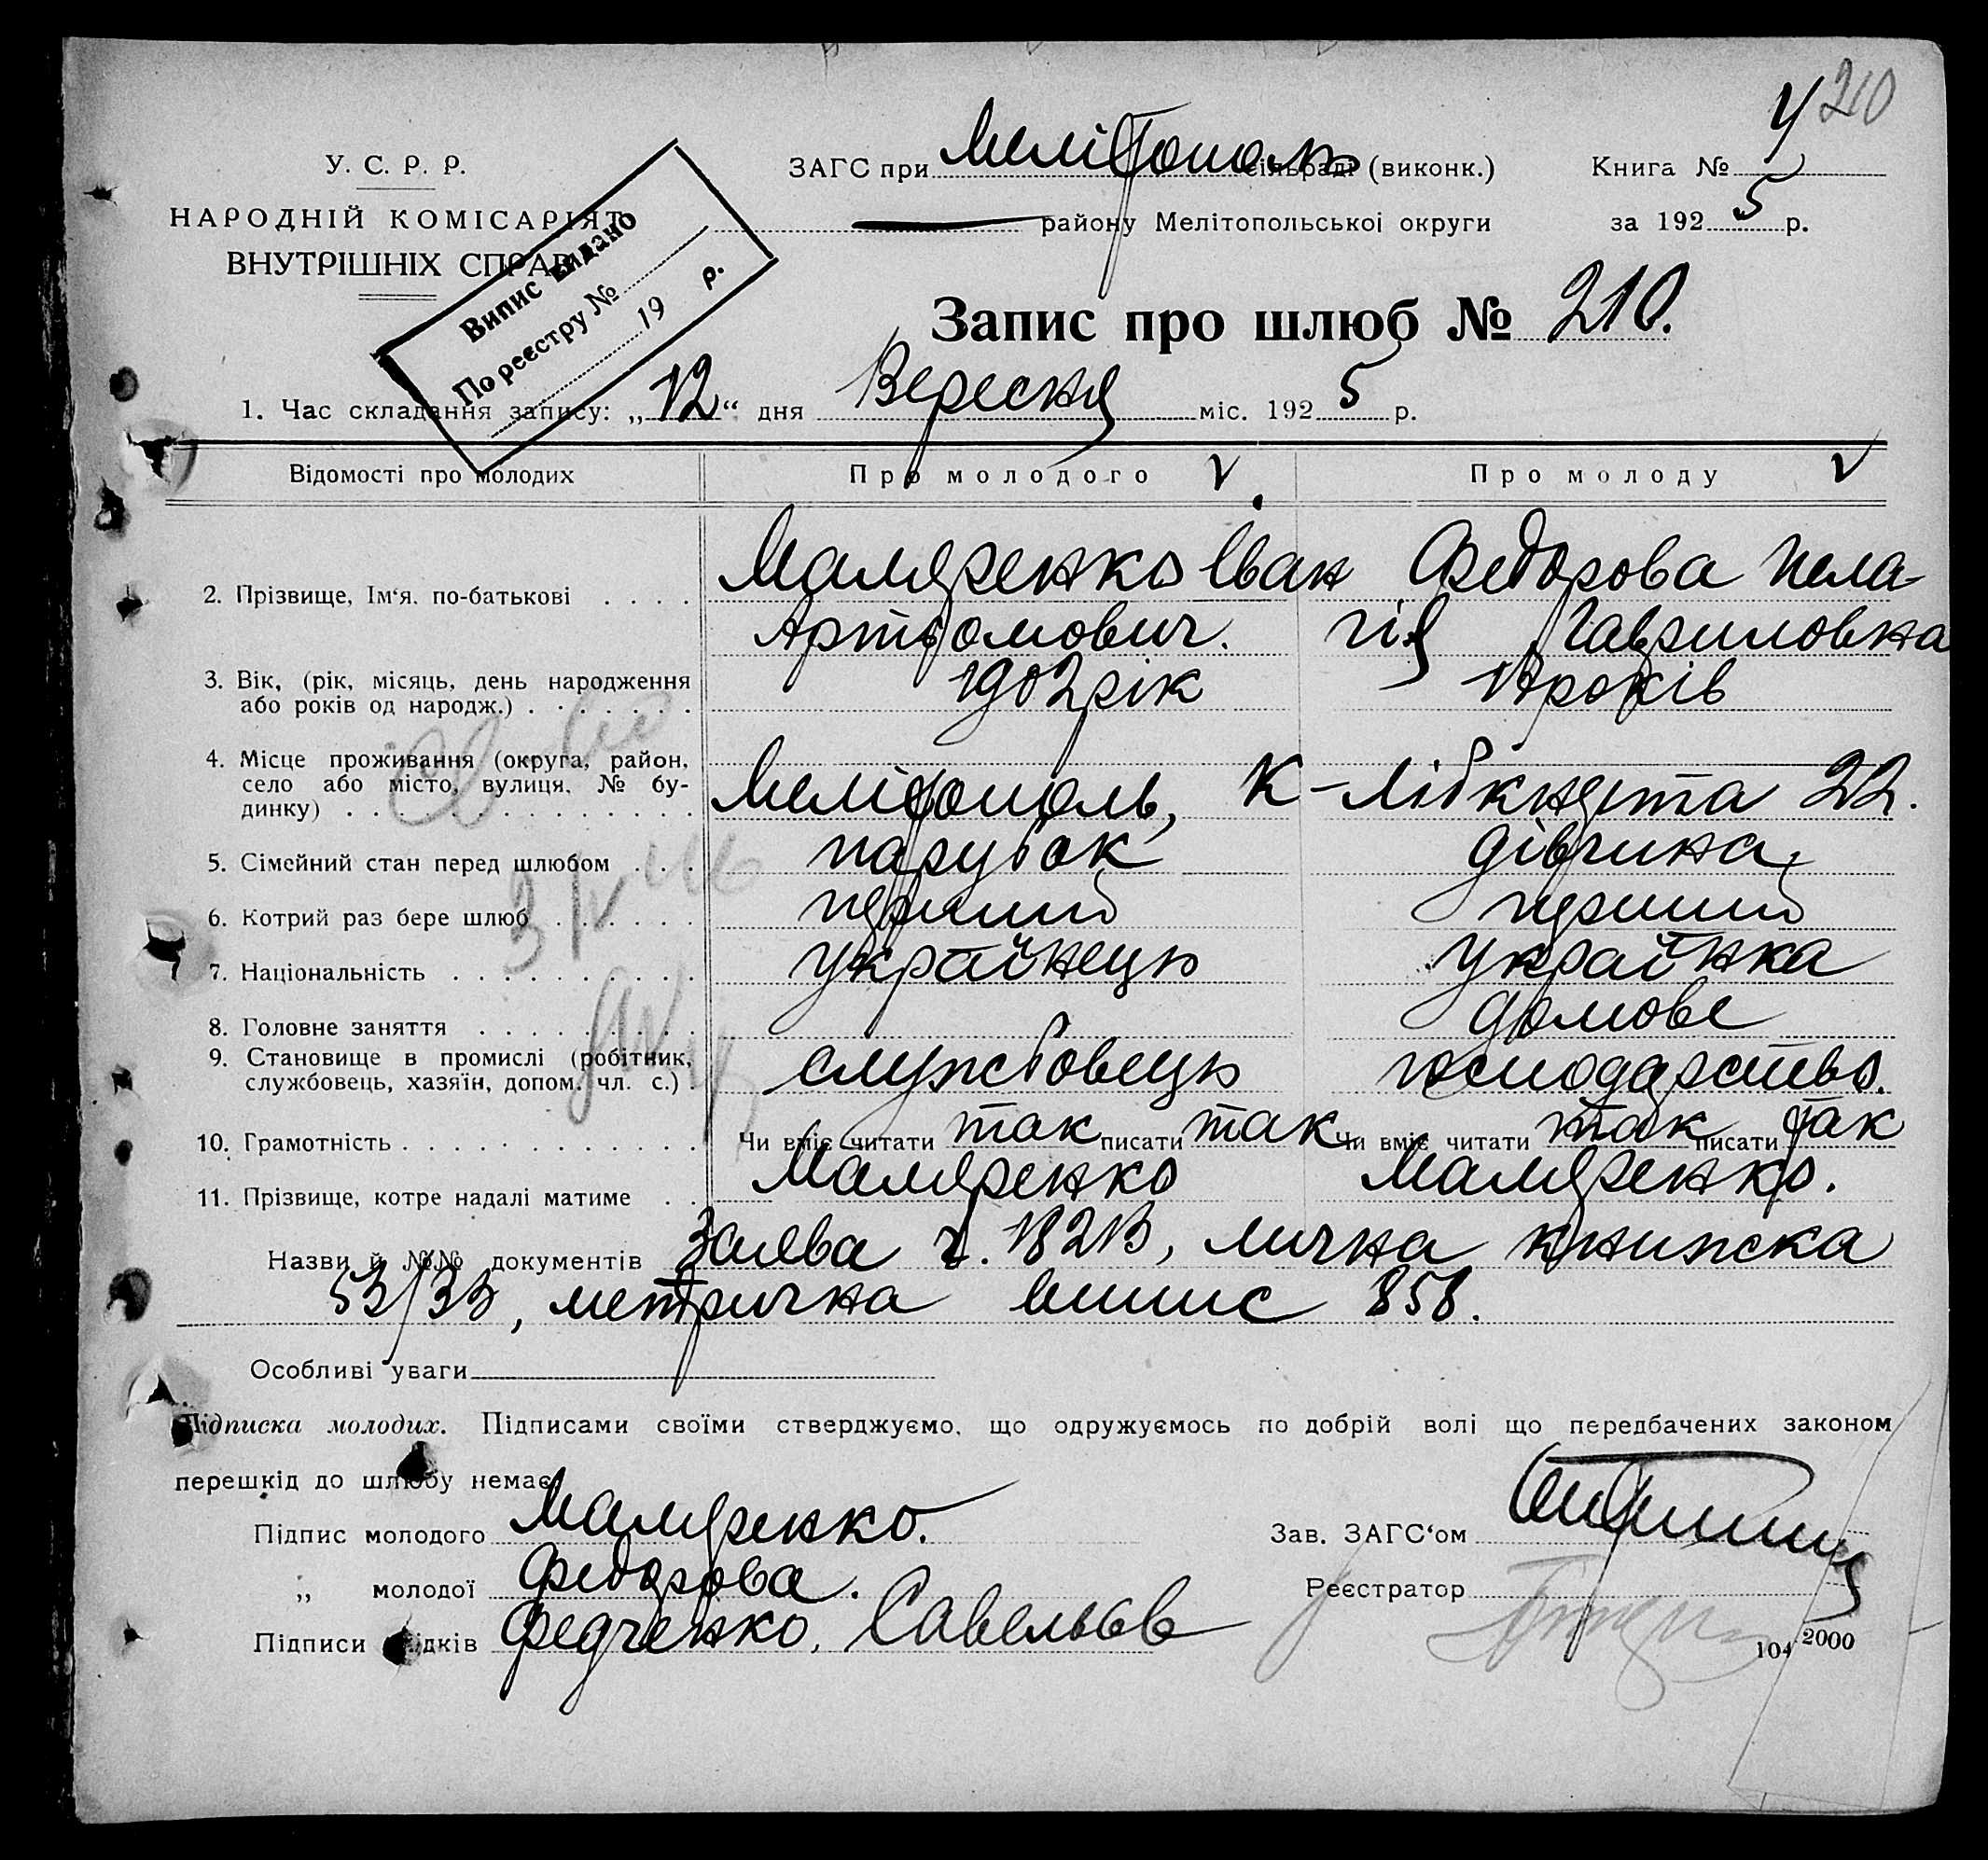 210
У. С. Р. Р.
НАРОДНІЙ КОМІСАРІЯТ
ВНУТРІШНІХ СПРАВ
Випис видано
По реєстру №
19 р.
ЗАГС при Мелітополь сільраді (виконк.)
району Мелітопольської округи
Книга №
за 1925 р.
Запис про шлюб № 210.
1. Час складання запису: „12“ дня Вересня міс. 1925 р.
Відомості про молодих Про молодого Про молоду
2. Прізвище, Ім‘я, по-батькові Маляренко Іван Федорова Пела-
Артьомович. гія Гавриловна
3. Вік, (рік, місяць, день народження 1902 рік років
або років од народж.)
4. Місце проживання (округа, район,
село або місто, вулиця, № бу- Мелітополь, К-Лібкнехта 22.
динку)
5. Сімейний стан перед шлюбом парубок дівчина
6. Котрий раз бере шлюб перший перший
7. Національність українець українка
8. Головне заняття домове
9. Становище в промислі (робітник, службовець господарство.
службовець, хазяїн, допом. чл. с.)
10. Грамотність Чи вміє читати так писати так Чи вміє читати так писати так
11. Прізвище, котре надалі матиме Маляренко Маляренко.
Назви й №№ документів Заява ч. лична книжка
53/33, метрична випис 858.
Особливі уваги
Підписка молодих. Підписами своїми стверджуємо, що одружуємось по добрій волі що передбачених законом
перешкід до шлюбу немає
Підпис молодого Маляренко.
„ молодої Федорова.
Підписи свідків Федченко, Савельєв
Зав. ЗАГС‘ом
Реєстратор
2000